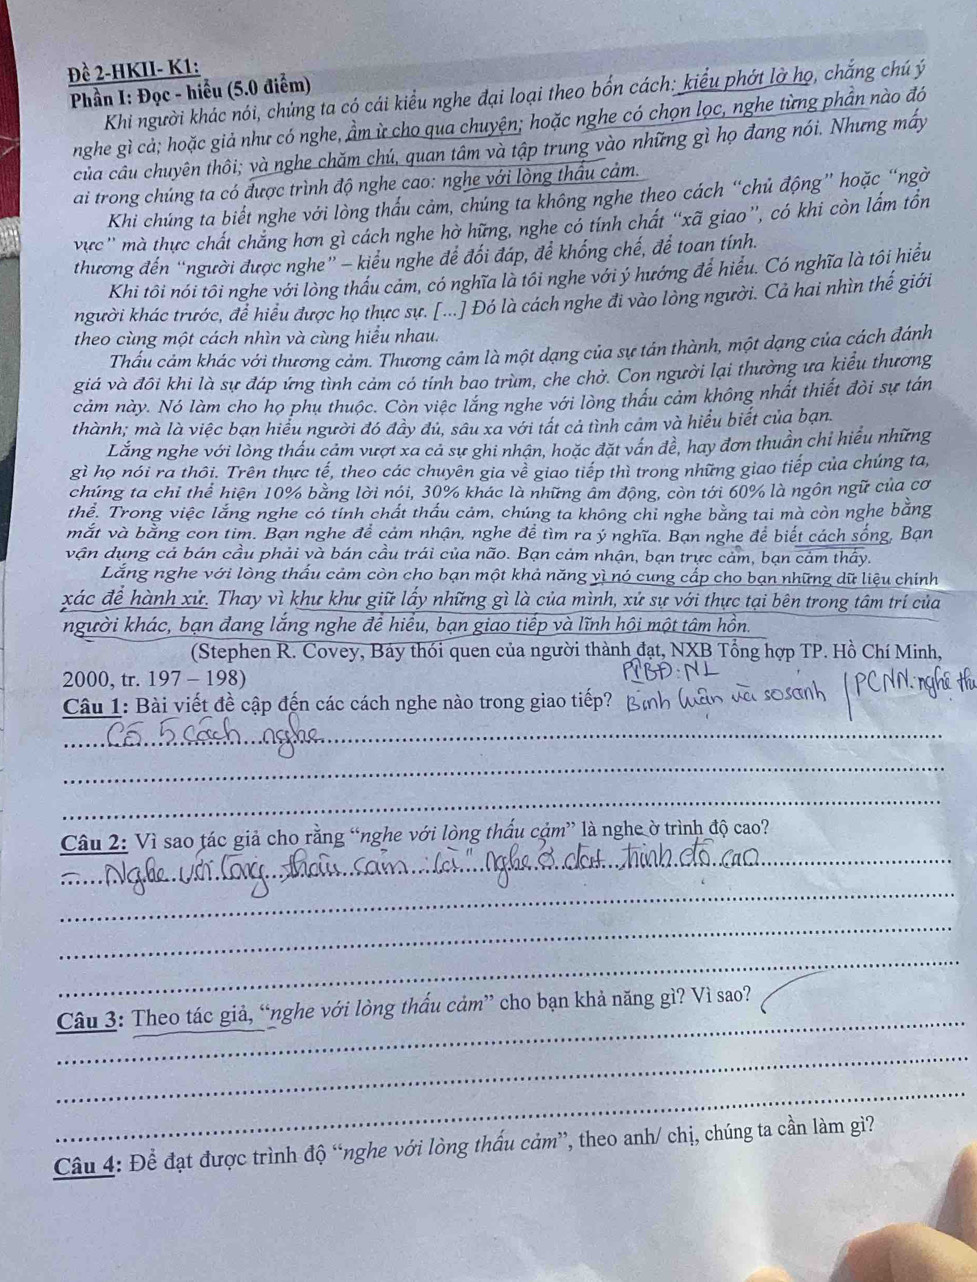 Đề 2-HKII- K1:
Phần I: Đọc - hiểu (5.0 điểm)
Khi người khác nói, chúng ta có cái kiểu nghe đại loại theo bốn cách: kiểu phớt lờ họ, chẳng chú ý
nghe gì cả; hoặc giả như có nghe, ầm ừ cho qua chuyện; hoặc nghe có chọn lọc, nghe từng phần nào đó
của câu chuyện thôi; và nghe chăm chú, quan tâm và tập trung vào những gì họ đang nói. Nhưng mấy
ai trong chúng ta có được trình độ nghe cao: nghe với lòng thấu cảm.
Khi chúng ta biết nghe với lòng thấu cảm, chúng ta không nghe theo cách “chủ động” hoặc “ngờ
vực” mà thực chất chẳng hơn gì cách nghe hờ hững, nghe có tính chất “xã giao”, có khi còn lắm tổn
thương đến “người được nghe” – kiểu nghe để đối đáp, để khống chế, để toan tính.
Khi tôi nói tôi nghe với lòng thấu cảm, có nghĩa là tôi nghe với ý hướng để hiểu. Có nghĩa là tôi hiểu
người khác trước, để hiểu được họ thực sự. [...] Đó là cách nghe đi vào lòng người. Cả hai nhìn thế giới
theo cùng một cách nhìn và cùng hiểu nhau.
Thấu cảm khác với thương cảm. Thương cảm là một dạng của sự tán thành, một dạng của cách đánh
giá và đôi khi là sự đáp ứng tình cảm có tính bao trùm, che chở. Con người lại thường ưa kiểu thương
cảm này. Nó làm cho họ phụ thuộc. Còn việc lắng nghe với lòng thấu cảm không nhất thiết đòi sự tán
thành; mà là việc bạn hiểu người đó đầy đủ, sâu xa với tất cả tình cảm và hiểu biết của bạn.
Lắng nghe với lòng thấu cảm vượt xa cả sự ghi nhận, hoặc đặt vấn đề, hay đơn thuần chỉ hiểu những
gì họ nói ra thôi. Trên thực tế, theo các chuyên gia về giao tiếp thì trong những giao tiếp của chúng ta,
chúng ta chỉ thể hiện 10% bằng lời nói, 30% khác là những âm động, còn tới 60% là ngôn ngữ của cơ
thể. Trong việc lắng nghe có tính chất thấu cảm, chúng ta không chỉ nghe bằng tai mà còn nghe bằng
mắt và bằng con tim. Bạn nghe để cảm nhận, nghe để tìm ra ý nghĩa. Bạn nghe để biết cách sống, Bạn
vận dụng cả bán cầu phải và bán cầu trái của não. Bạn cảm nhận, bạn trực cảm, bạn cảm thấy.
Lắng nghe với lòng thấu cảm còn cho bạn một khả năng vì nó cung cấp cho bạn những dữ liệu chính
xác để hành xử. Thay vì khư khư giữ lấy những gì là của mình, xử sự với thực tại bên trong tâm trí của
người khác, bạn đang lắng nghe để hiểu, bạn giao tiếp và lĩnh hội một tâm hồn.
(Stephen R. Covey, Bảy thói quen của người thành đạt, NXB Tổng hợp TP. Hồ Chí Minh,
2000, tr. 197 – 198)
PTBĐ: NL
Câu 1: Bài viết đề cập đến các cách nghe nào trong giao tiếp? Bình luận và so sánh
PCNN. nghệ thu
Có 5 cách nghe
Câu 2: Vì sao tác giả cho rằng “nghe với lòng thấu cảm” là nghe ở trình độ cao?
Nghe với lòng thấu cảm là nghe ở đạt trình độ cao
Câu 3: Theo tác giả, “nghe với lòng thấu cảm” cho bạn khả năng gì? Vì sao?
Câu 4: Để đạt được trình độ “nghe với lòng thấu cảm”, theo anh/ chị, chúng ta cần làm gì?